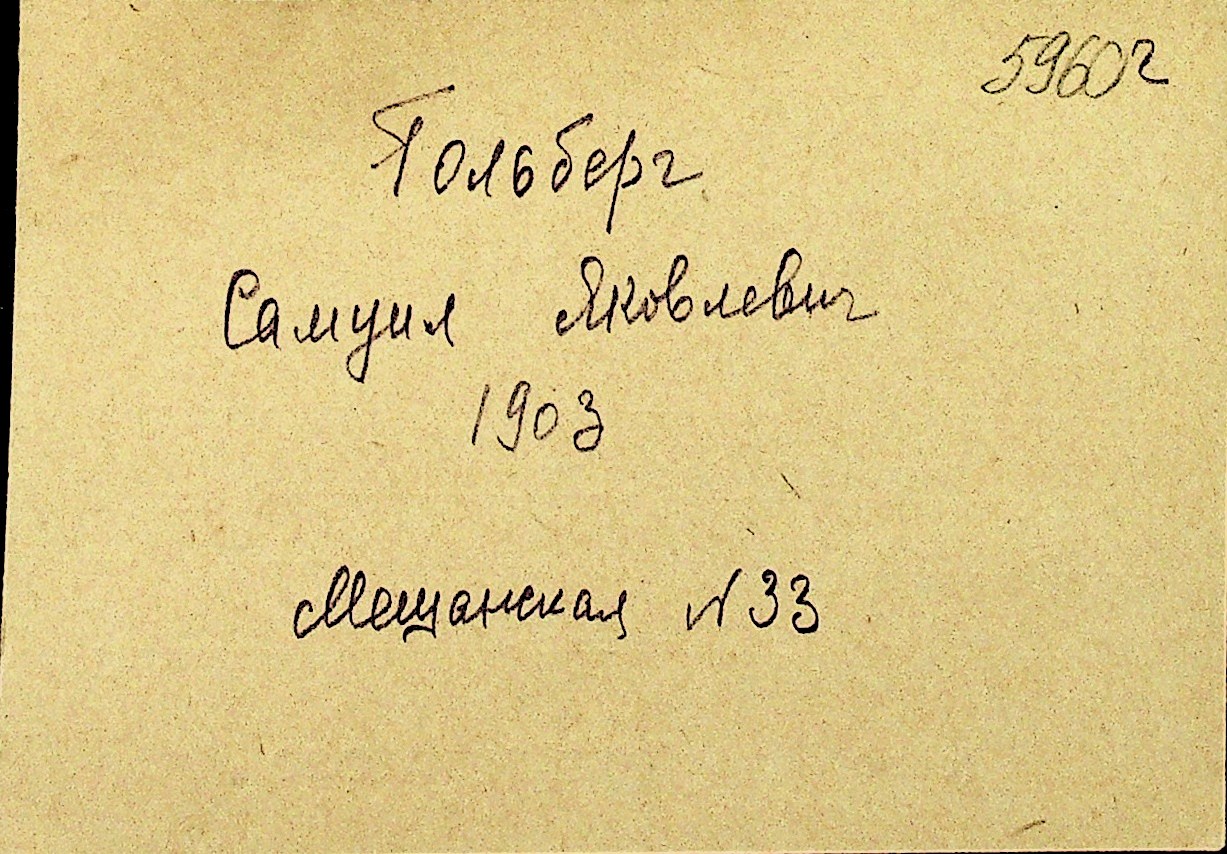 5960г
Гольберг
Самуил Яковлевич
1903
Мещанская N 33